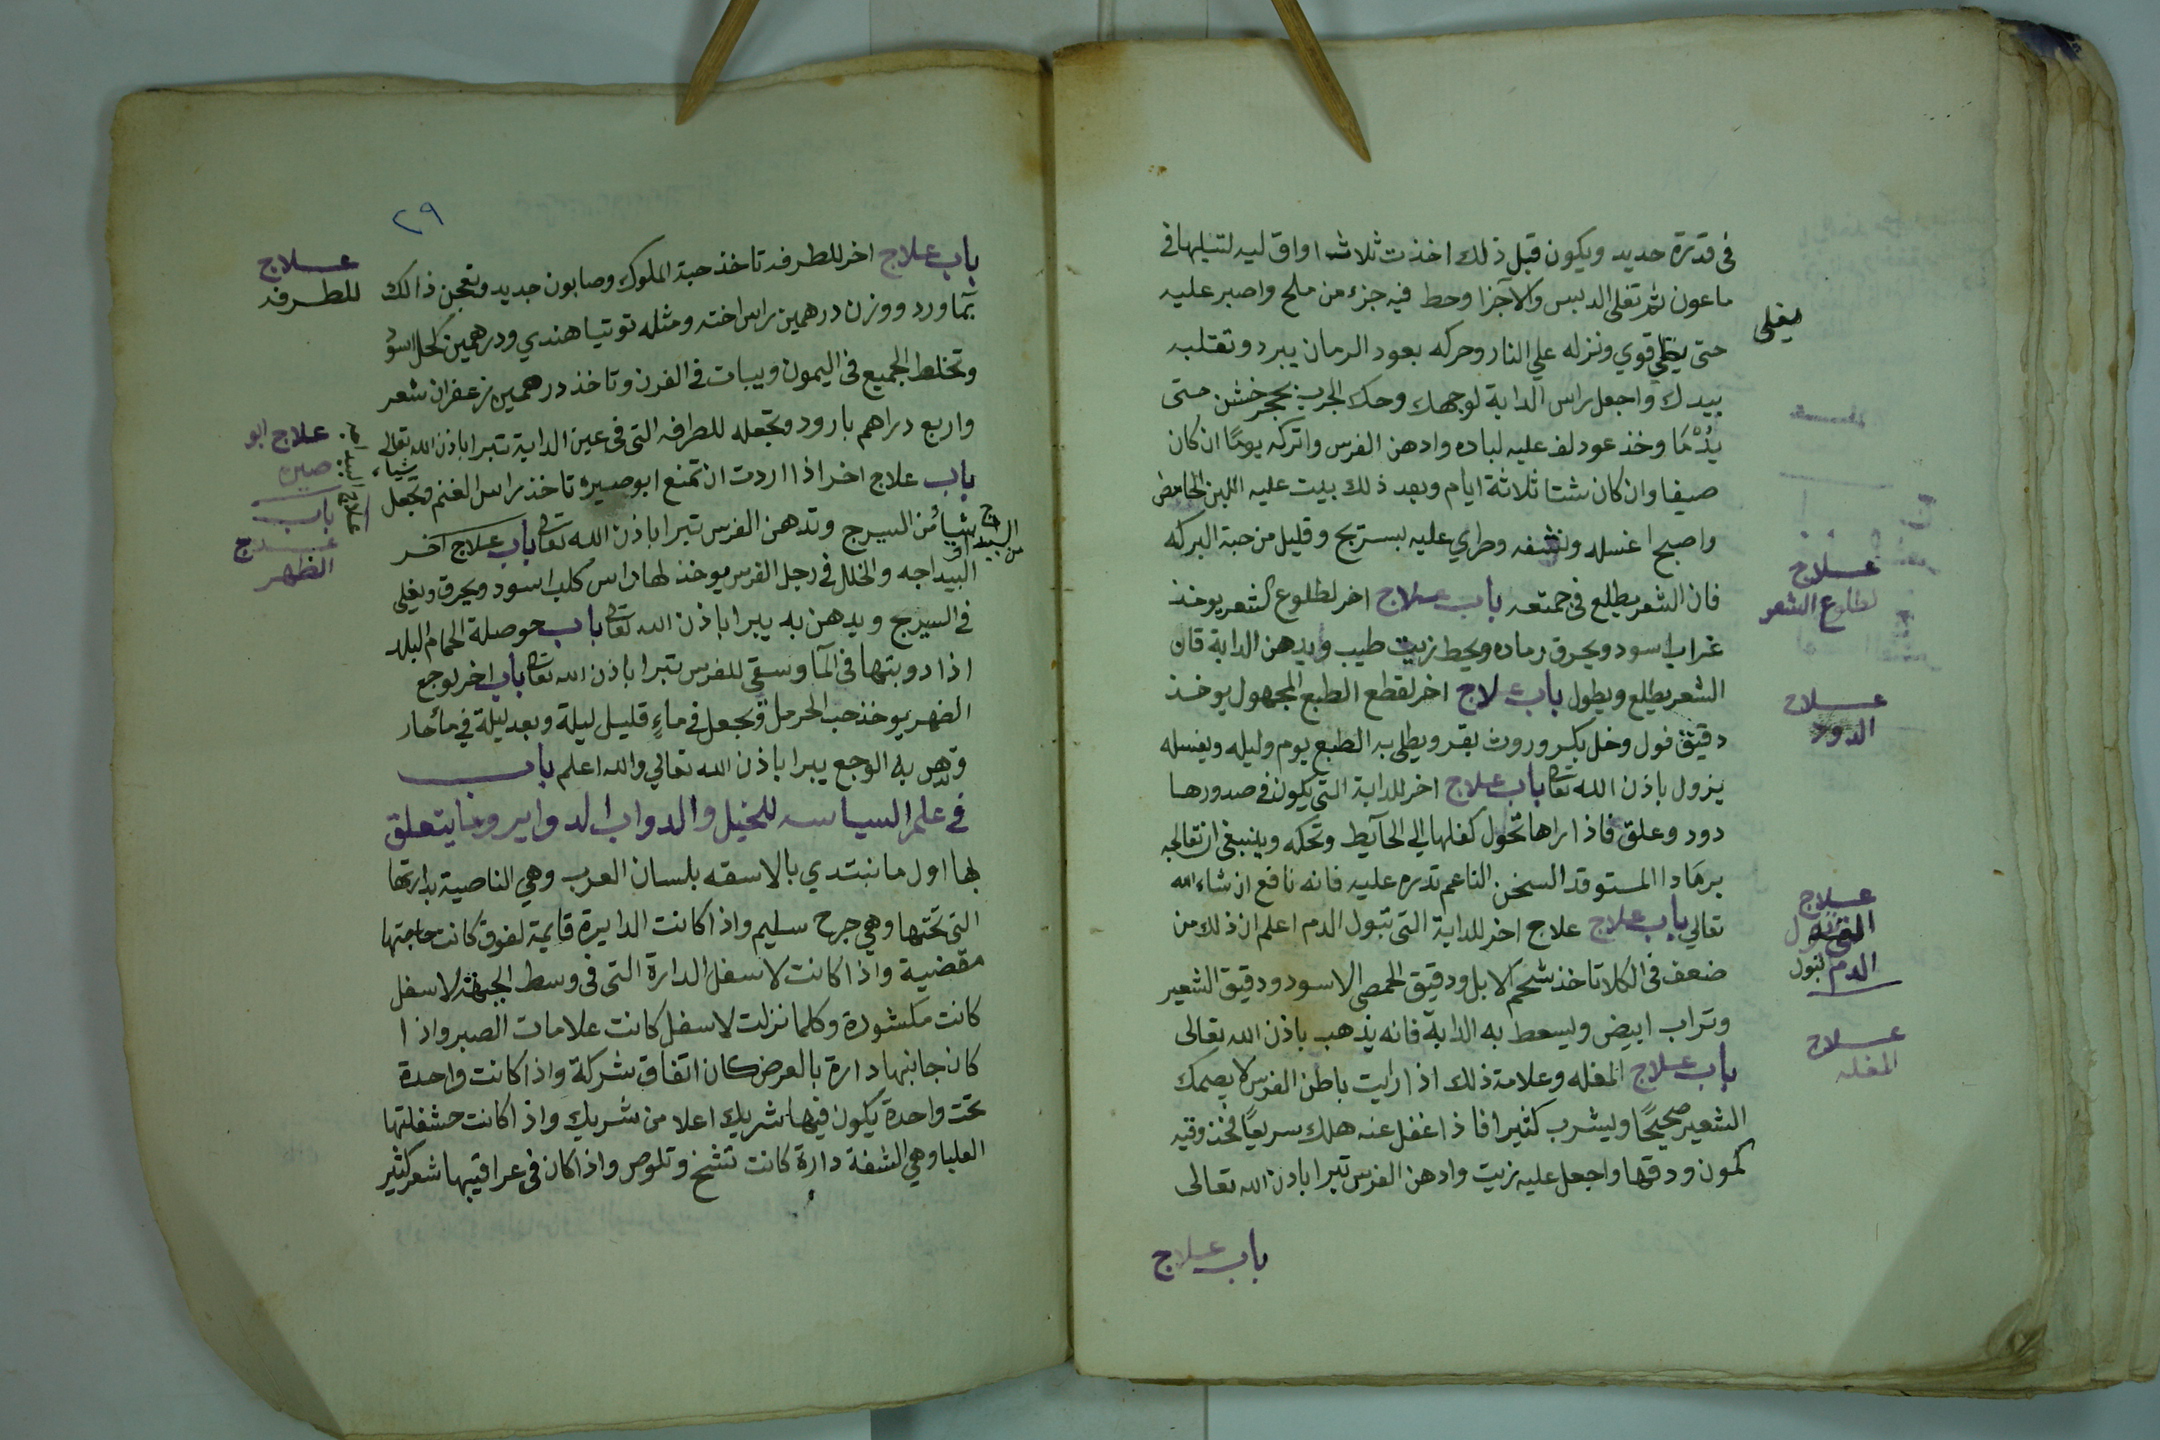 فى قدرة حديد ويكون قبل ذلك اخذت ثلاث اواق ليه لتسليها فى
ماعون ثم تغلى الدبس والاجزا وحط فيه جزء من ملح واصبر عليه
يغلى
حتى يغلي قوي ونزله علي النار وحركه بعود الرمان يبرد وتقلبه
بيدك واجعل راس الدابة لوجهك وحك الجرب بحجر خشن حتى
يُدْمَا وخذ عود لف عليه لباده وادهن الفرس واتركه يومًا ان كان
صيفا وان كان شتا ثلاثة ايام وبعد ذلك بيت عليه اللبن الحامض
واصبح اغسله ونشفه وطراي عليه بستريح وقليل من حبة البركه
علاج
لطلوع الشعر
فان الشعر يطلع فى جمعته باب علاج اخر لطلوع الشعر يوخذ
غراب اسود ويحرق رماده ويحط زيت طيب ويدهن الدابة فان
علاج
الدود
الشعر يطلع ويطول باب علاج اخر لقطع الطبع المجهول يوخذ
دقيق فول وخل بكر وروث بقر ويطلى به الطبع يوم وليله ويغسله
يزول باذن الله تعالى باب علاج اخر للدابة التي يكون فى صدورها
دود وعلق فاذا اراها تحول كفلها الي الحآيط وتحكه وينبغى ان تعالجه
علاج
برمَادا المستوقد السخن الناعم تدره عليه فانه نافع ان شاء الله
التى تبول
الدم
تعالي باب علاج علاج اخر للدابة التى تبول الدم اعلم ان ذلك من
ضعف فى الكلا تاخذ شحم الابل ودقيق الحمص الاسود ودقيق الشعير
علاج
المغله
وتراب ابيض ويسعط به الدابة فانه يذهب باذن الله تعالى
باب علاج المغله وعلامة ذلك اذا رايت باطن الفرس لا يصمك
الشعير صحيحًا ويشرب كثيرا فاذا غفل عنه هلك سريعًا فخذ وقيه
كمون ودقها واجعل عليه زيت وادهن الفرس تبرا باذن الله تعالى
باب علاج
٢٩
علاج
للطرفه
باب علاج اخر للطرفه تاخذ حبة الملوك وصابون جديد وتعجن ذالك
بمآ ورد ووزن درهمين راس اخته ومثله توتيا هندي ودرهمين كحل اسود
وتخلط الجميع فى اليمون ويبات فى الفرن وتاخذ درهمين زعفران شعر
علاج ابو
صيره
واربع دراهم بارود وتجعله للطرافه التى فى عين الدابة تبرا باذن الله تعالى
باب علاج اخر اذا اردت ان تمنع ابو صيره تاخذ راس الغنم وتجعل
باب
علاج
الظهر
شيا من السيرج وتدهن الفرس تبرا باذن الله تعالى باب علاج اخر
البيداجه والخلل فى رجل الفرس يوخذ لها راس كلب اسود ويحرق ويغلى
فى السيرج ويدهن به يبرا باذن الله تعالى باب حوصلة الحمام البلد
اذا دوبتها فى المآ وسقى للفرس تبرا باذن الله تعالى باب اخر لوجع
الضهر يوخذ حب الحرمل وتجعل فى ماءٍ قليل ليلة وبعد ليلة في مآ حار
وتدهن به الوجع يبرا باذن الله تعالي والله اعلم باب
فى علم السياسه للخيل والدواب الدواير وما يتعلق
بها اول ما نبتدي بالاسقه بلسان العرب وهي الناصية بدارتها
التى تحتها وهي جرح سليم واذا كانت الدايرة قايمة لفوق كانت حاجتها
مقضية واذا كانت لاسفل الدارة التى فى وسط الجبهة لاسفل
كانت مكشودة وكلما نزلت لاسفل كانت علامات الصبر واذا
كان جانبها دارة بالعرض كان اتفاق شركة واذا كانت واحدة
تحت واحدة يكون فيها شريك اعلا من شريك واذا كانت حشفلتها
العليا وهي الشفة دارة كانت تشخ وتلوص واذا كان فى عراقيبها شعر كثير